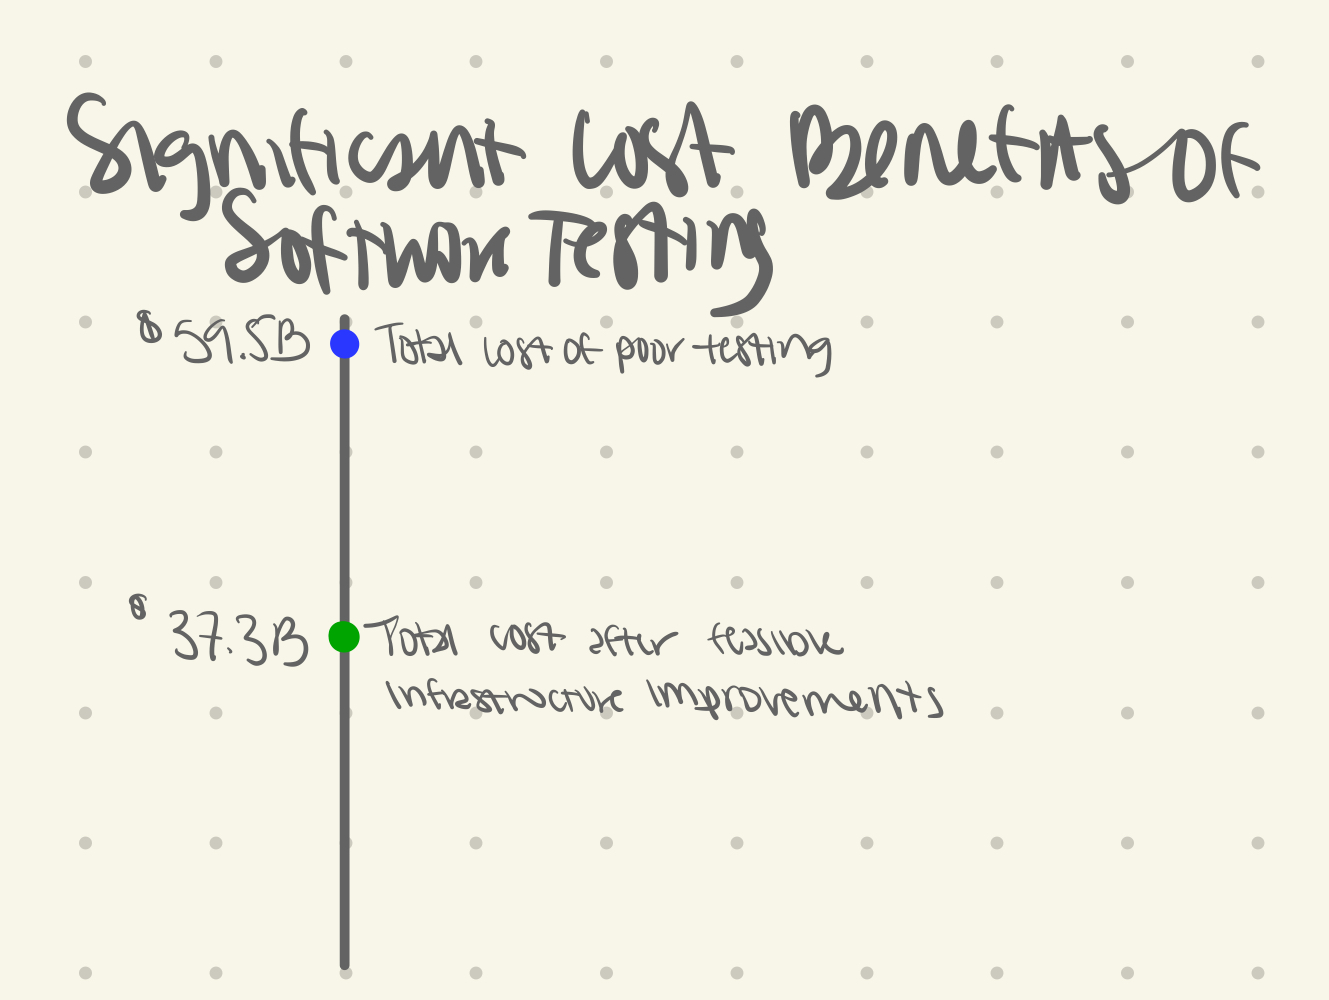 Significant Cost Benefits of
Software Testing
$59.5B Total cost of poor testing
$37.3B Total cost after feasible
infrastructure improvements